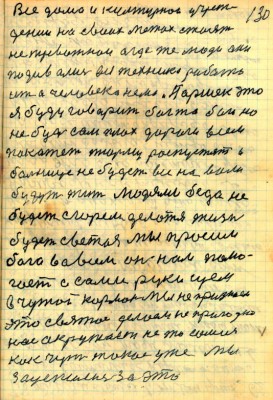 130
Все дома и культурно учреж
дении на своих местах стоят
не тревожной а где же люди они
подивались вся техника работь
ита человека нема. Паршек это
я буду говорит бог то было но
не буд сам плох дорога всем
покажет тюрьму распустят а
больнице не будет все на воли
будут жит людям беда не
будет с горем делотя жизнь
будет светая мы просим
бога вовсем он нам помо
гает а сами руки суем
в чужой карман мы не признаем
это святое делом не природно
нас окружает не то самия
как чут такое уже мы
за это